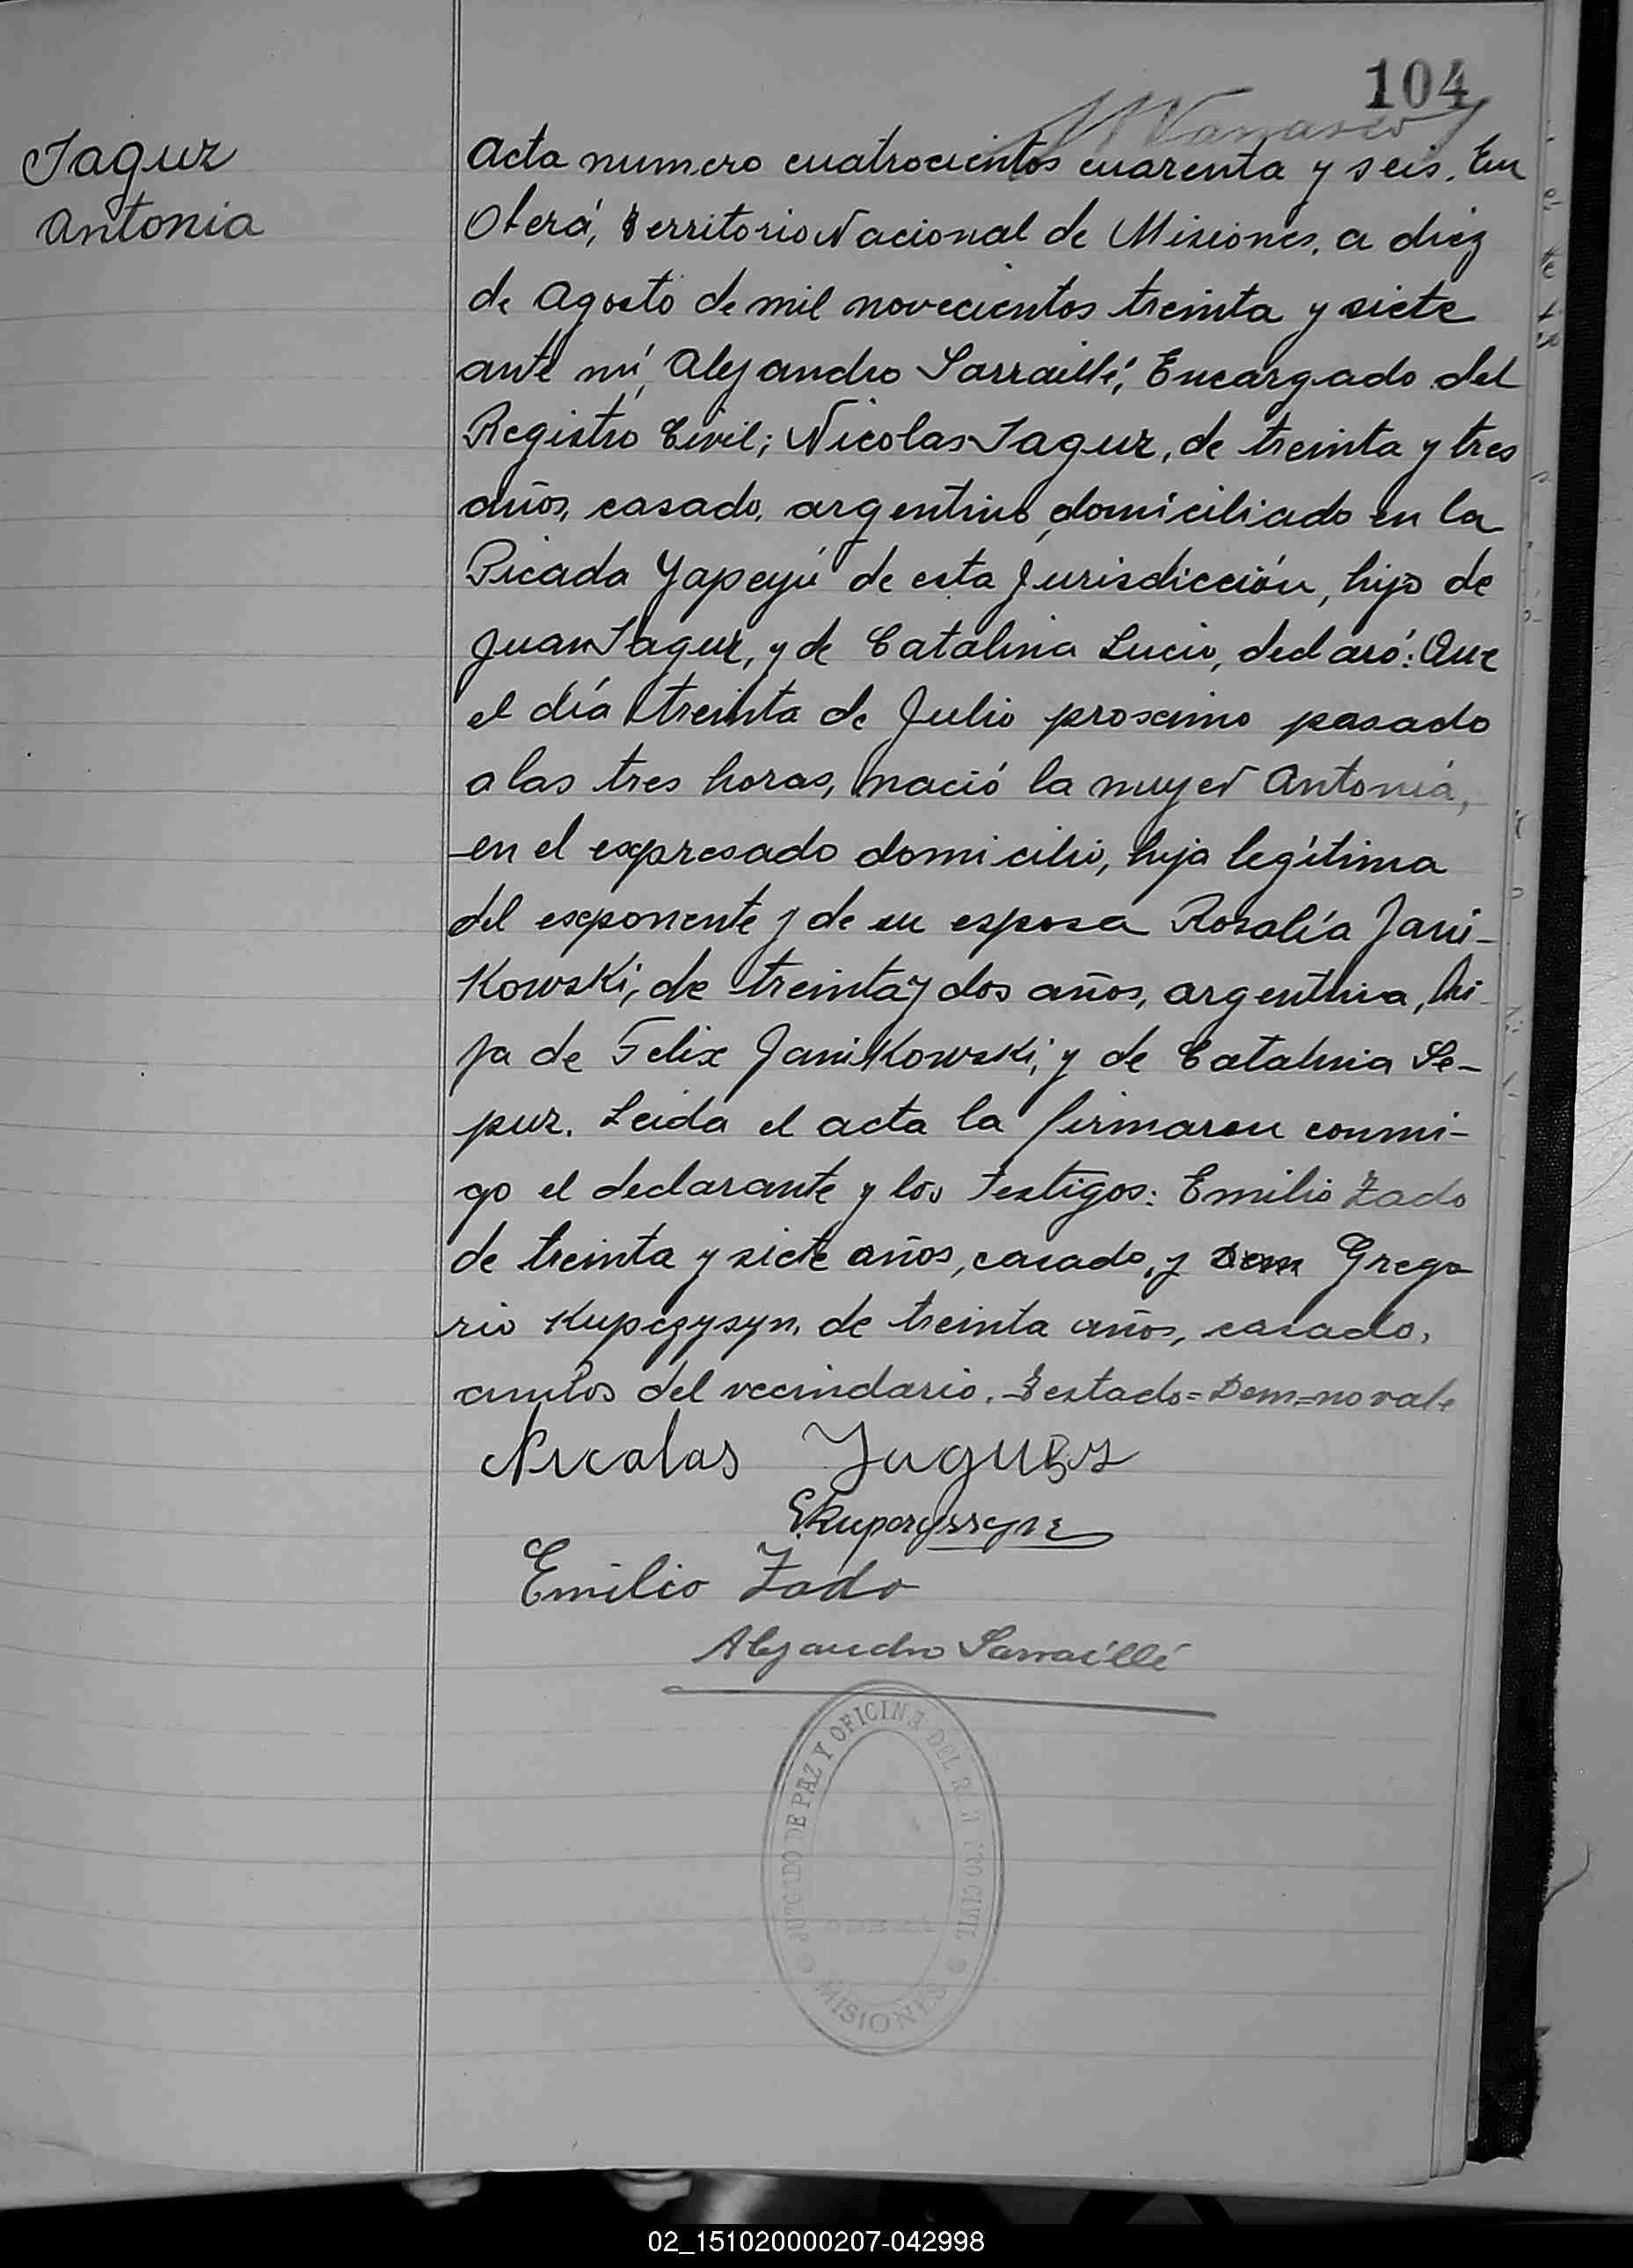 104
Jaguz
Antonia
Acta numero cuatrocientos cuarenta y seis. En
Oberá, Territorio Nacional de Misiones, a diez
de Agosto de mil novecientos treinta y siete
ante mí, Alejandro Sarraillé, Encargado del
Registro Civil; Nicolas Jaguz, de treinta y tres
años, casado, argentino, domiciliado en la
Picada Yapeyú de esta Jurisdicción, hijo de
Juan Jaguz, y de Catalina Luciv, declaró: Que
el día treinta de Julio proximo pasado
a las tres horas, nació la mujer Antonia,
en el expresado domicilio, hija legítima
del exponente y de su esposa Rosalía Jani-
Kowski, de treinta y dos años, argentina, hi
ja de Felix JaniKowski, y de Catalina Se-
puz. Leida el acta la firmaron conmi-
go el declarante y los testigos: Emilio Zado
de treinta y siete años, casado, y Dom Grego
rio Kupczysyn, de treinta años, casado,
ambos del vecindario. Testado=Dom=no vale
Nicolas
Emilio Zado
Alejandro Sarraillé
JUZGADO DE PAZ Y OFICINA DEL REGISTRO CIVIL
MISIONES
02_151020000207-042998